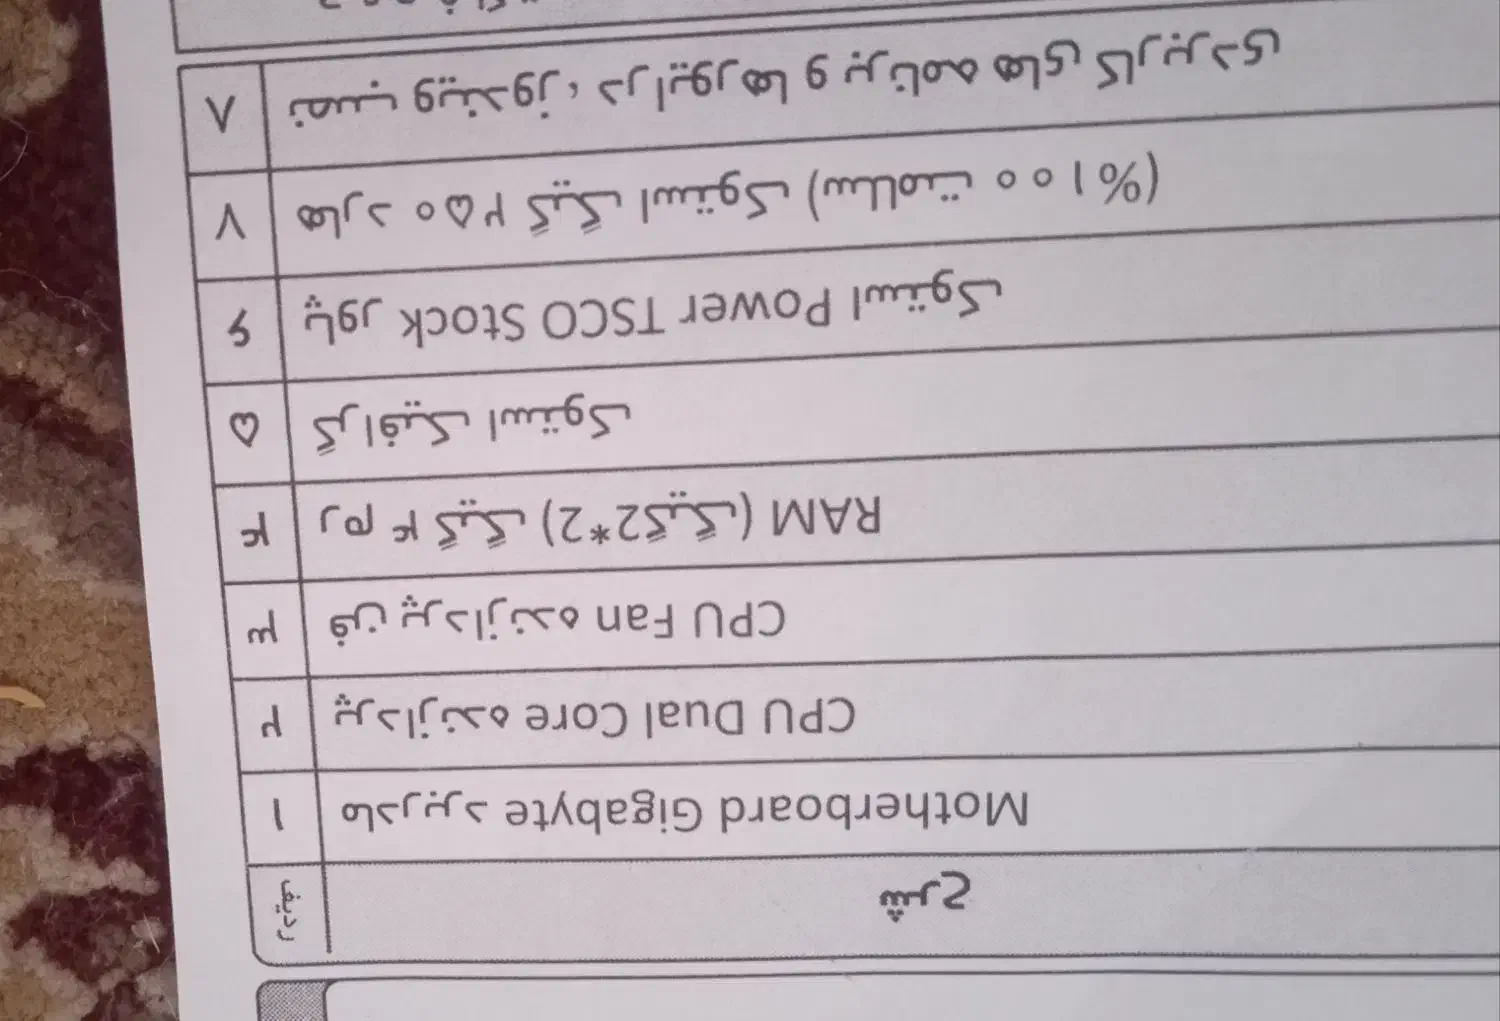 ردیف شرح
۱ مادربرد Motherboard Gigabyte
۲ پردازنده CPU Dual Core
۳ فن پردازنده CPU Fan
۴ رم ۴ گیگ (2*2گیگ) RAM
۵ گرافیک استوک
۶ پاور Power TSCO Stock استوک
۷ هارد ۲۵۰ گیگ استوک (سلامت ۱۰۰%)
۸ نصب ویندوز، درایورها و برنامه های کاربردی